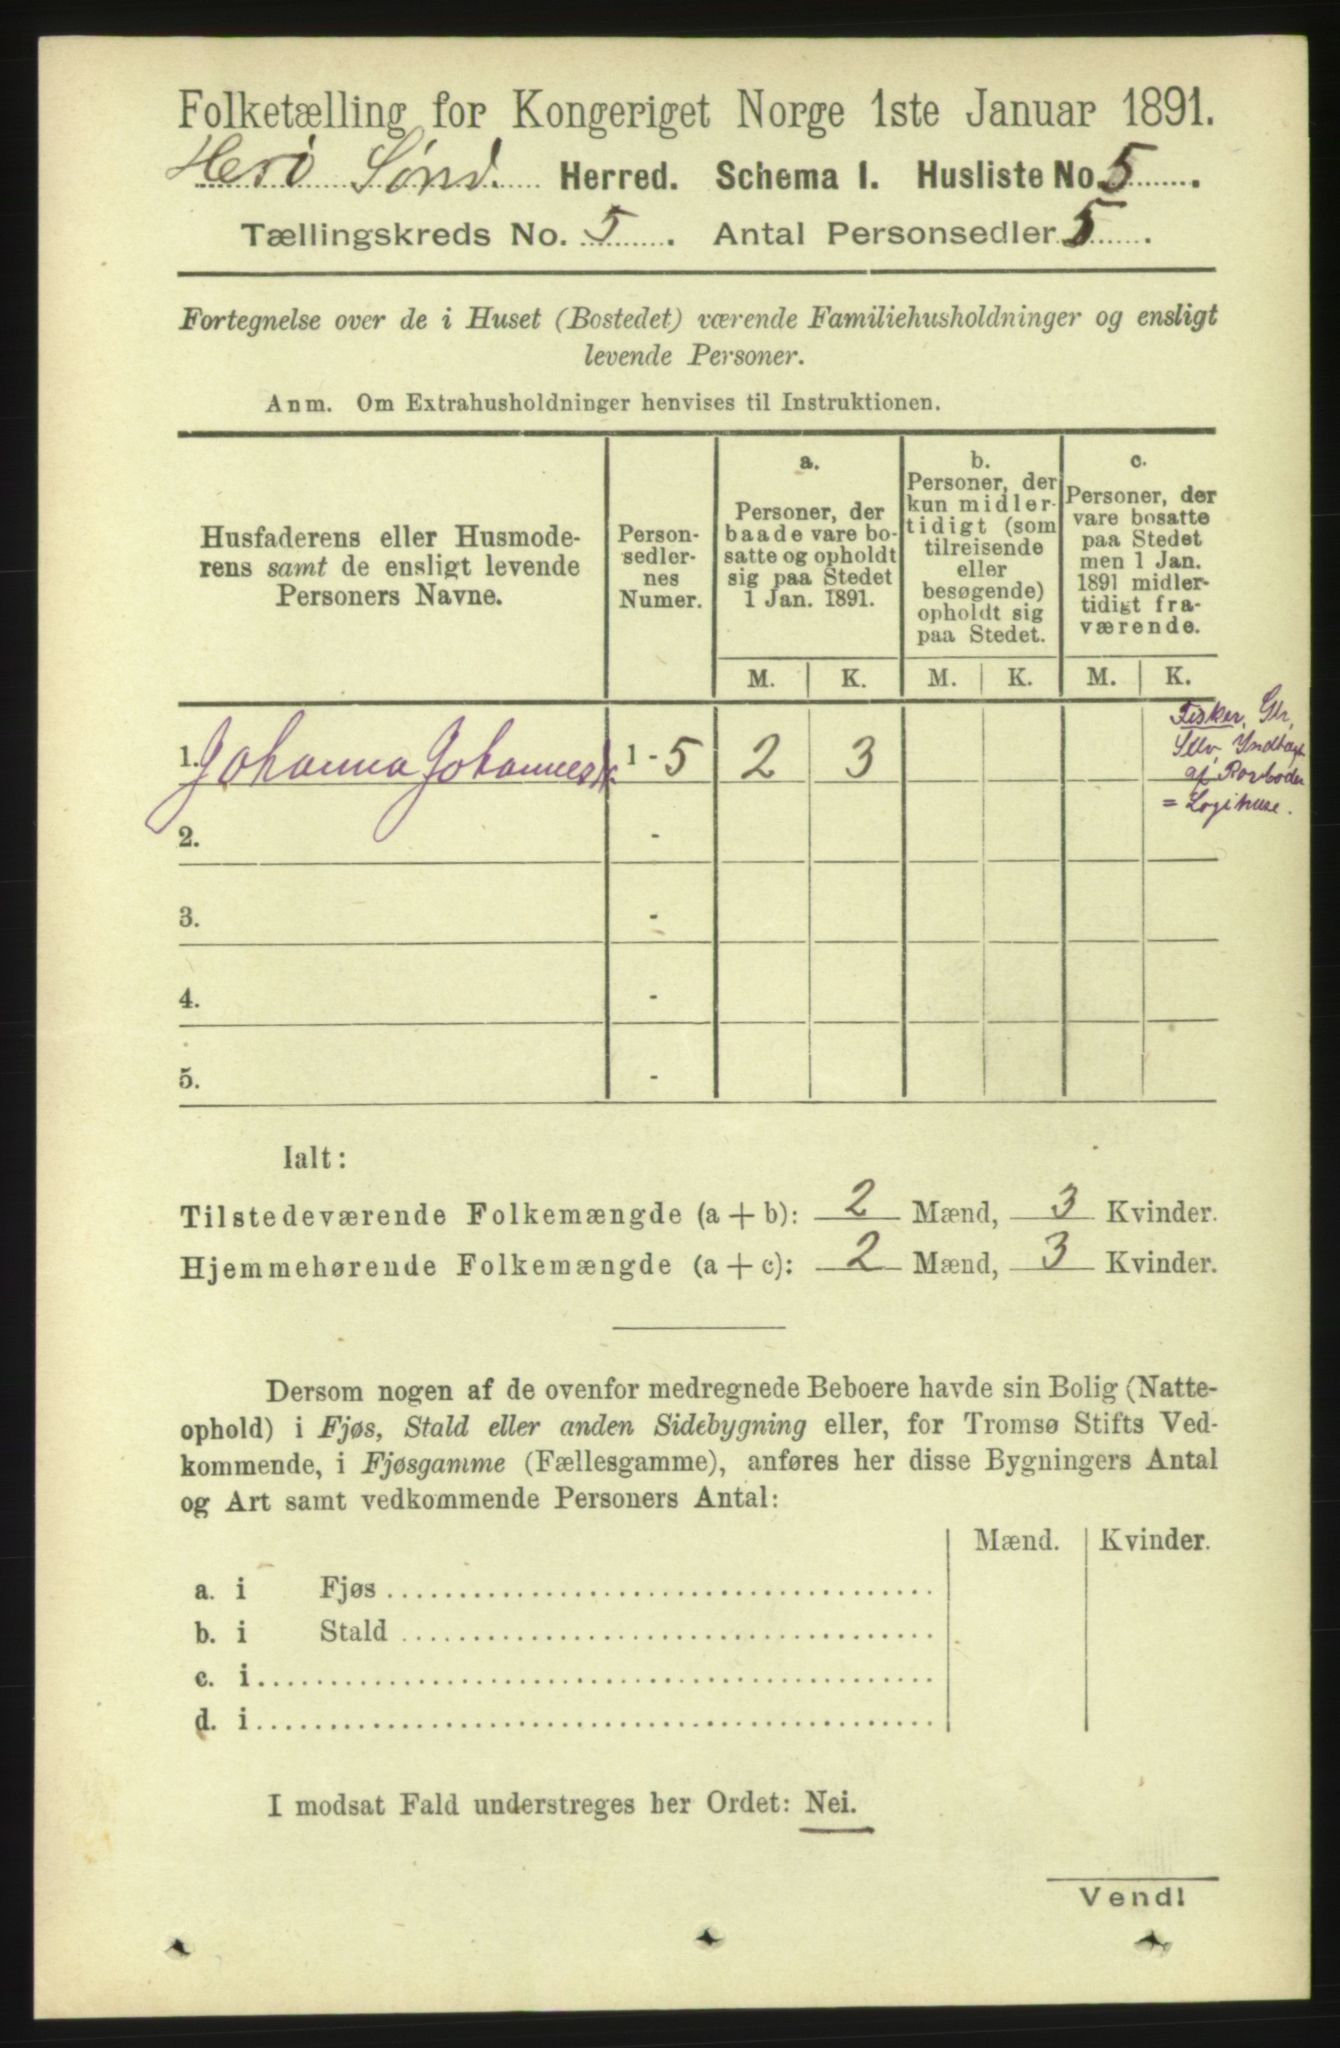 Folketælling for Kongeriget Norge 1ste Januar 1891.
Herö Sönd. Herred. Schema 1. Husliste No. 5.
Tællingskreds No. 5. Antal Personsedler 5.
Fortegnelse over de i Huset (Bostedet) værende Familiehusholdninger og ensligt
levende Personer.
Anm. Om Extrahusholdninger henvises til Instruktionen.
Husfaderens eller Husmode-
rens samt de ensligt levende
Personers Navne.
Person-
sedler-
nes
Numer.
a.
Personer, der
baade vare bo-
satte og opholdt
sig paa Stedet
1 Jan. 1891.
b.
Personer, der
kun midler-
tidigt (som
tilreisende
eller
besøgende)
opholdt sig
paa Stedet.
c.
Personer, der
vare bosatte
paa Stedet
men 1 Jan.
1891 midler-
tidigt fra-
værende.
M. K. M. K. M. K.
1. Johanna Johannes 1 - 5 2 3
Fisker,
af Rorboder
= Logihuse.
2. -
3. -
4. -
5. -
Ialt:
Tilstedeværende Folkemængde (a + b): 2 Mænd, 3 Kvinder.
Hjemmehørende Folkemængde (a + c): 2 Mænd, 3 Kvinder.
Dersom nogen af de ovenfor medregnede Beboere havde sin Bolig (Natte-
ophold) i Fjøs, Stald eller anden Sidebygning eller, for Tromsø Stifts Ved-
kommende, i Fjøsgamme (Fællesgamme), anføres her disse Bygningers Antal
og Art samt vedkommende Personers Antal:
Mænd. Kvinder.
a. i Fjøs
b. i Stald
c. i
d. i
I modsat Fald understreges her Ordet: Nei.
Vend!